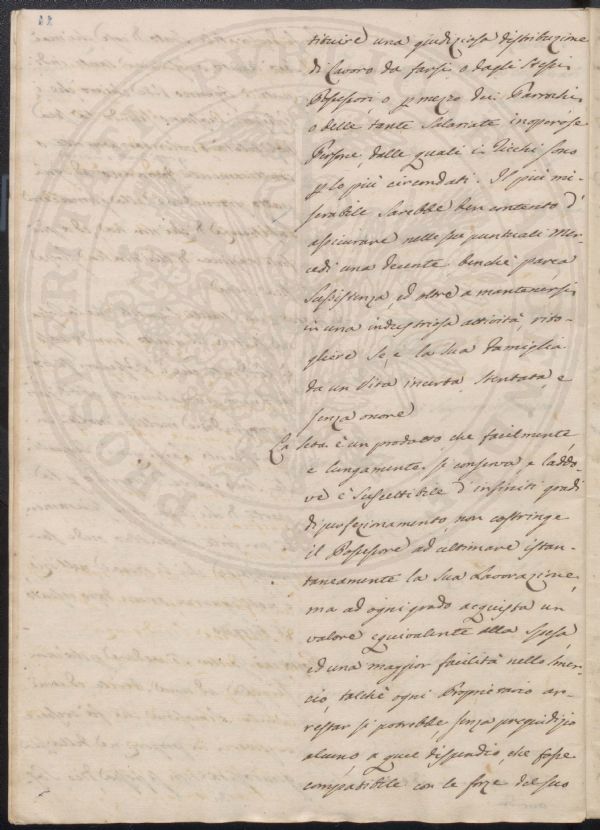 tituire una giudiziosa distribuzione
di Lavoro da farsi o dagli stessi
Possessori, o p mezzo dei Parrochi,
o delle tante Salariate inoperose
Persone, dalle quali i Ricchi sono
p lo più circondati. Il più mi-
serabile sarebbe ben contento d'
assicurare nelle sue puntuali Mer-
cedi una decente, benchè parca
Sussistenza, ed oltre a mantenersi
in una industriosa attività, rito-
gliere se, e la sua Famiglia
da un Vita incerta, stentata, e
senza onore
La seta è un prodotto che facilmente,
e lungamente si conserva, e laddo-
ve è suscettibile d'infiniti gradi
di perfezionamento, non costringe
il Possessore ad ultimare istan-
taneamente la sua Lavorazione,
ma ad ogni grado acquista un
valore equivalente alla spesa,
ed una maggior facilità nello smer-
cio, talchè ogni Proprietario ar-
restar si potrebbe senza pregiudizio
alcuno a quel dispendio, che fosse
compatibile con le forze del suo